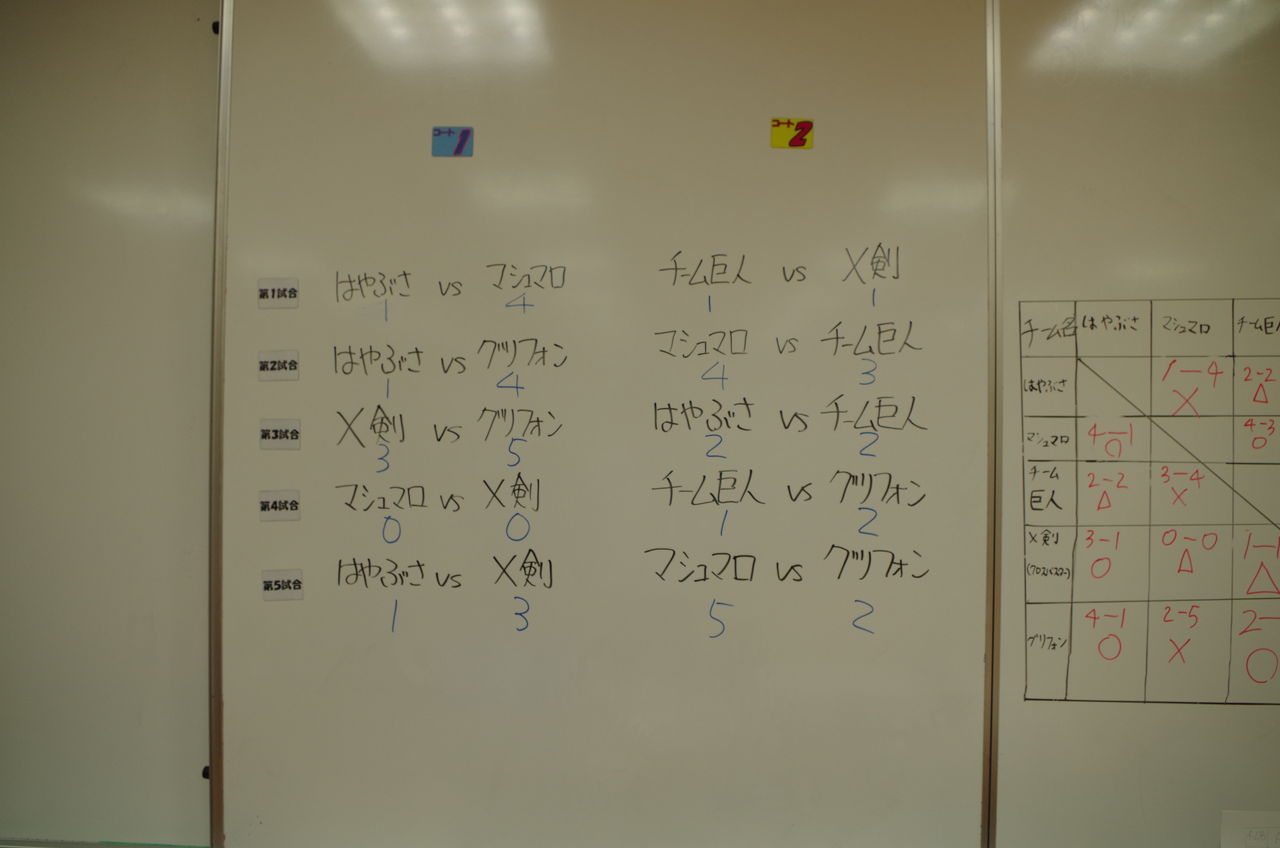 コート1
コート2
第1試合 はやぶさ vs マシュマロ チーム巨人 vs X剣
1 4 1 1
第2試合 はやぶさ vs グリフォン マシュマロ vs チーム巨人
1 4 4 3
第3試合 X剣 vs グリフォン はやぶさ vs チーム巨人
3 5 2 2
第4試合 マシュマロ vs X剣 チーム巨人 vs グリフォン
0 0 1 2
第5試合 はやぶさ vs X剣 マシュマロ vs グリフォン
1 3 5 2
チーム名 はやぶさ マシュマロ チーム巨
はやぶさ 1-4 2-2
× △
マシュマロ 4-1 4-3
○ ○
チーム 2-2 3-4
巨人 △ ×
X剣 3-1 0-0 1-1
(クロスバスター) ○ △ △
グリフォン 4-1 2-5 2-
○ × ○